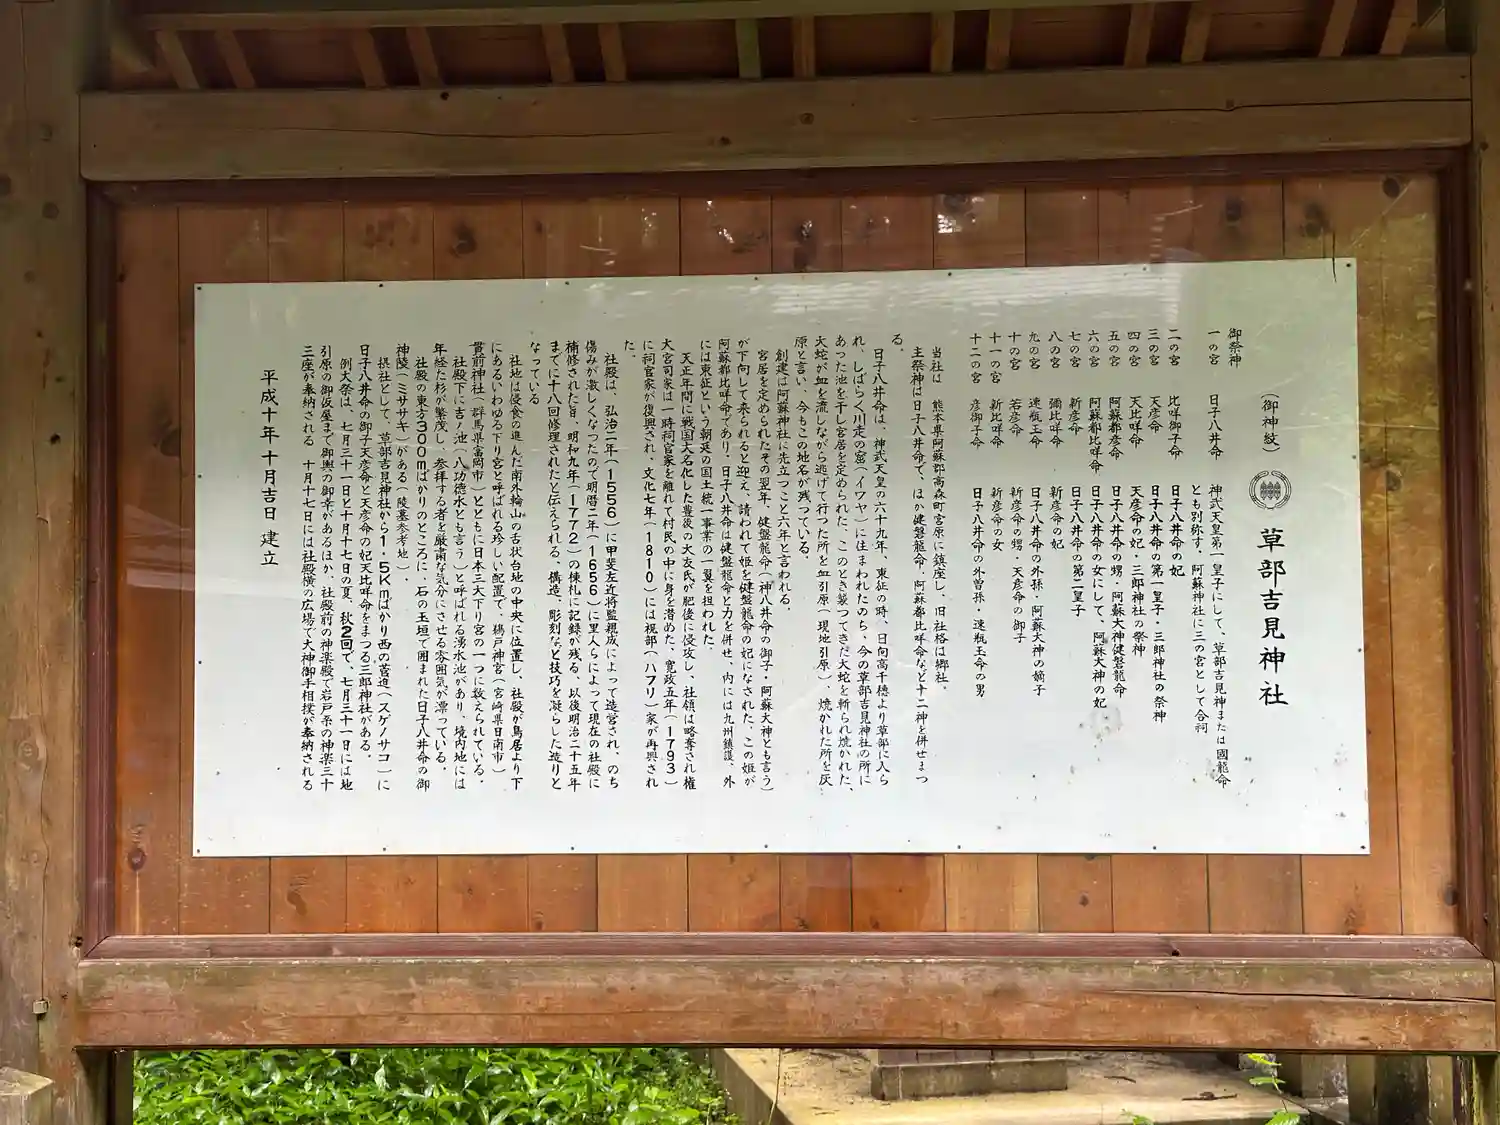 草部吉見神社
(御神紋)
御祭神
一の宮 日子八井命 神武天皇第一皇子にして、草部吉見神または國龍命
とも別称す。阿蘇神社に三の宮として合祠
二の宮 比咩御子命 日子八井命の妃
三の宮 天彦命 日子八井命の第一皇子・三郎神社の祭神
四の宮 天比咩命 天彦命の妃・三郎神社の祭神
五の宮 阿蘇都彦命 日子八井命の甥・阿蘇大神健磐龍命
六の宮 阿蘇都比咩命 日子八井命の女にして、阿蘇大神の妃
七の宮 新彦命 日子八井命の第二皇子
八の宮 彌比咩命 新彦命の妃
九の宮 速瓶玉命 日子八井命の外孫・阿蘇大神の嫡子
十の宮 若彦命 新彦命の甥・天彦命の御子
十一の宮 新比咩命 新彦命の女
十二の宮 彦御子命 日子八井命の外曽孫・速瓶玉命の男
当社は 熊本県阿蘇郡高森町宮原に鎮座し、旧社格は郷社。
主祭神は日子八井命で、ほか健磐龍命・阿蘇都比咩命など十二神を併せまつ
る。
日子八井命は、神武天皇の六十九年、東征の時、日向高千穂より草部に入ら
れ、しばらく川走の窟(イワヤ)に住まわれたのち、今の草部吉見神社の所に
あった池を干し宮居を定められた、このとき襲つてきた大蛇を斬られ焼かれた、
大蛇が血を流しながら逃げて行つた所を血引原(現地引原)、焼かれた所を灰
原と言い、今もこの地名が残っている。
創建は阿蘇神社に先立つこと六年と言われる。
宮居を定められたその翌年、健磐龍命(神八井命の御子・阿蘇大神とも言う)
が下向して来られると迎え、請われて姫を健磐龍命の妃になされた、この姫が
阿蘇都比咩命であり・日子八井命は健磐龍命と力を併せ、内には九州鎮護、外
には東征という朝廷の国土統一事業の一翼を担われた。
天正年間に戦国大名化した豊後の大友氏が肥後に侵攻し、社領は略奪され権
大宮司家は一時祠官家を離れて村民の中に身を潜めた、寛政五年(1793)
に祠官家が復興され、文化七年(1810)には祝部(ハフリ)家が再興され
た。
社殿は、弘治二年(1556)に甲斐左近将監親成によって造営され、のち
傷みが激しくなつたので明暦二年(1656)に里人らによって現在の社殿に
補修された旨、明和九年(1772)の棟札に記録が残る、以後明治二十五年
までに十八回修理されたと伝えられる、構造、彫刻など技巧を凝らした造りと
なっている
社地は侵食の進んだ南外輪山の舌状台地の中央に位置し、社殿が鳥居より下
にあるいわゆる下り宮と呼ばれる珍しい配置で、鵜戸神宮(宮崎県日南市)
貫前神社(群馬県富岡市)とともに日本三大下り宮の一つに数えられている。
社殿下に吉ノ池(八功徳水とも言う)と呼ばれる湧水池があり、境内地には
年経た杉が繁茂し、参拝する者を厳粛な気分にさせる雰囲気が漂っている。
社殿の東方300mばかりのところに、石の玉垣で囲まれた日子八井命の御
神陵(ミササギ)がある(陵墓参考地)。
摂社として、草部吉見神社から1・5Kmばかり西の菅迫(スゲノサコ)に
日子八井命の御子天彦命と天彦命の妃天比咩命をまつる三郎神社がある。
例大祭は、七月三十一日と十月十七日の夏、秋2回で、七月三十一日には地
引原の御仮屋まで御輿の御幸があるほか、社殿前の神楽殿で岩戸系の神楽三十
三座が奉納される 十月十七日には社殿横の広場で大神御手相撲が奉納される
平成十年十月吉日 建立